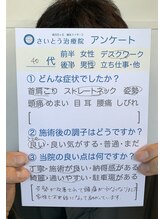 さいとう治療院 アンケート
40代 前半 女性 デスクワーク
後半 男性 立ち仕事・他
①どんな症状でしたか？
首肩こり ストレートネック 姿勢
頭痛 めまい 目 耳 腰痛 しびれ
②施術後の調子はどうですか？
良い・良い気がする・普通・まだ
③当院の良い点は何ですか？
丁寧・施術が良い・納得感がある
綺麗・通いやすい・駐車場がある